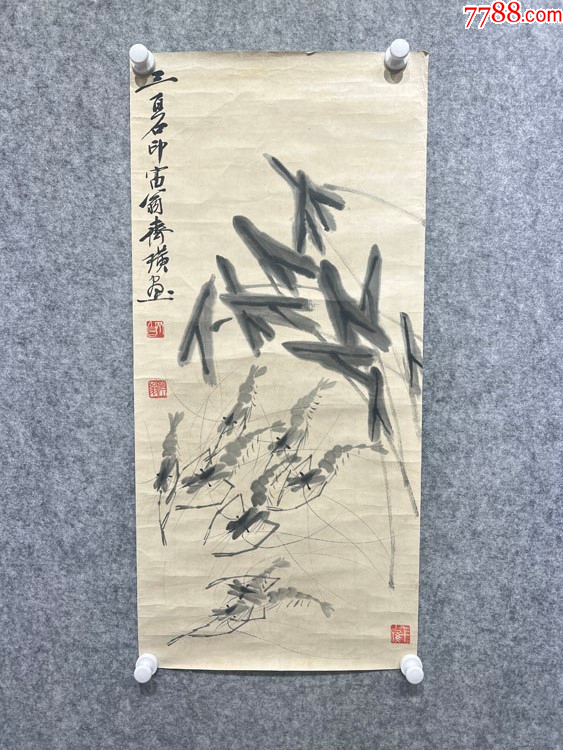 7788.com
三百石印富翁齊璜畫